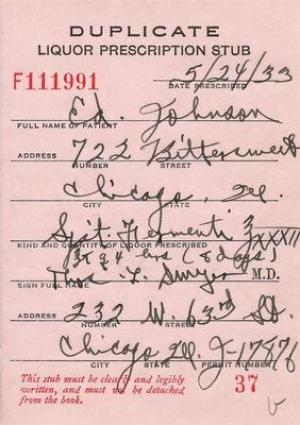 DUPLICATE
LIQUOR PRESCRIPTION STUB
F111991
5/24/33
DATE PRESCRIBED
Ed. Johnson
FULL NAME OF PATIENT
ADDRESS 722 Bittersweet
NUMBER STREET
Chicago, Ill.
CITY STATE
Spt. Frumenti ℥XXXII
KIND AND QUANTITY OF LIQUOR PRESCRIBED
q 4 hrs (8 days)
Thos. L. Dwyer M.D.
SIGN FULL NAME
ADDRESS 232 W. 63rd St.
NUMBER STREET
Chicago Ill. J-17876
CITY STATE PERMIT NUMBER
This stub must be clearly and legibly
written, and must not be detached
from the book.
37